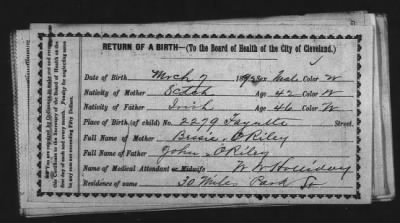 RETURN OF A BIRTH—(To the Board of Health of the City of Cleveland.)
Date of Birth Mrch 7 Sex Male Color W
Nativity of Mother Sctch Age 42 Color W
Nativity of Father Irish Age 46 Color W
Place of Birth (of child) No. 2279 Fayette Street.
Full Name of Mother Bessie O'Riley
Full Name of Father John O'Riley
Name of Medical Attendant or Midwife W W Holliday
Residence of same 30 Miles Park